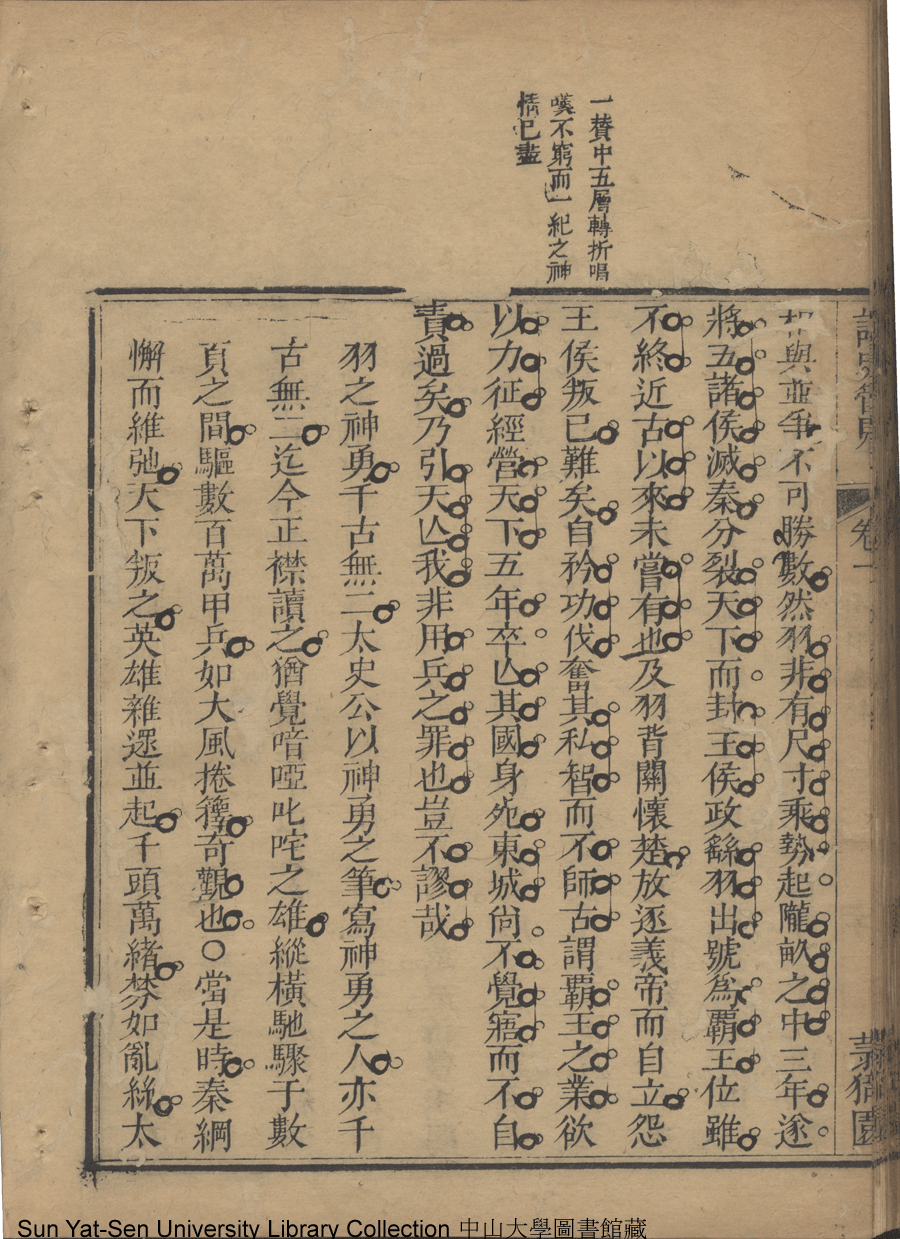 一贊中五層轉折唱
嘆不窮而一紀之神
情已盡
卷一
相與並爭不可勝數然羽非有尺寸乘勢起隴畝之中三年遂
將五諸侯滅秦分裂天下而封王侯政繇羽出號爲覇王位雖
不終近古以來未嘗有也及羽背關懷楚放逐義帝而自立怨
王侯叛已難矣自矜功伐奮其私智而不師古謂覇王之業欲
以力征經營天下五年卒亾其國身死東城尙不覺寤而不自
責過矣乃引天亾我非用兵之罪也豈不謬哉
羽之神勇千古無二太史公以神勇之筆寫神勇之人亦千
古無二迄今正襟讀之猶覺喑啞叱咤之雄縱橫馳驟于數
頁之間驅數百萬甲兵如大風捲籜奇觀也○當是時秦綱
懈而維弛天下叛之英雄雜遝並起千頭萬緒棼如亂絲太
Sun Yat-Sen University Library Collection 中山大學圖書館藏